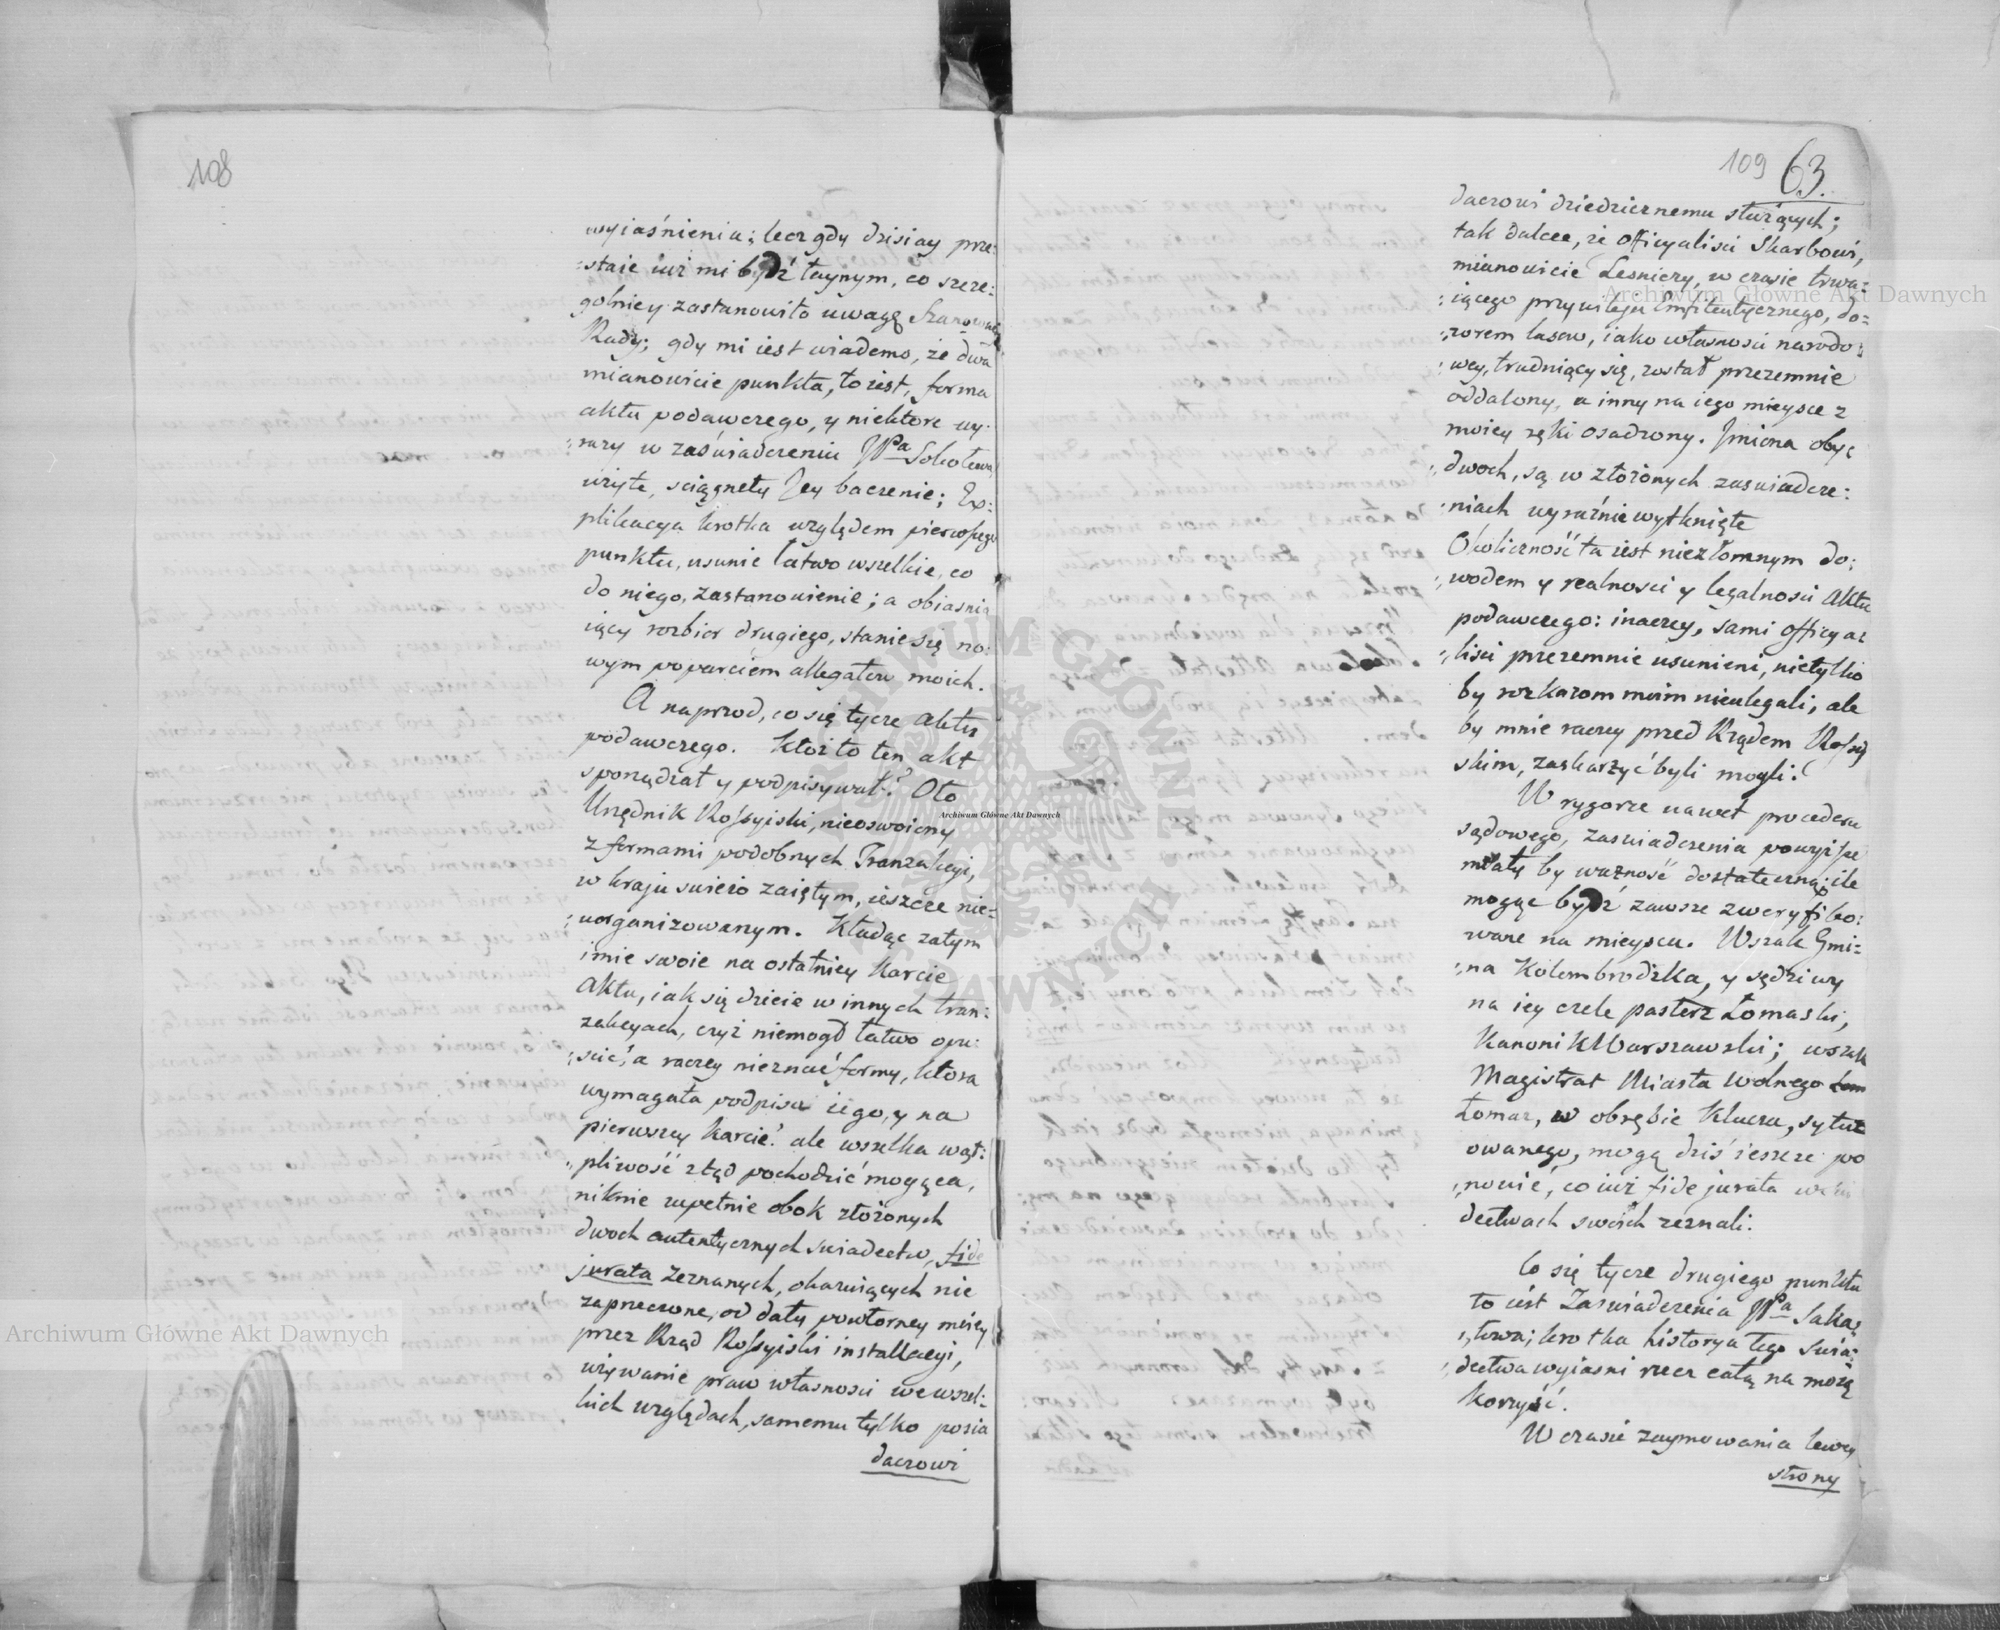 108
wyiaśnienia; lecz gdy dzisiay prze:
:staie iuż mi bydź taynym, co szcze:
golniey zastanowiło uwagę Szanowney
Rady; gdy mi iest wiadomo, że dwa
mianowicie punkta, to iest, forma
aktu podawczego, y niektóre wy:
:razy w zaświadczeniu JPa Sokołowa
użyte, sciągnęły Jey baczenie; Ex:
plikacya krotka względem pierwszego
punktu, usunie łatwo wszelkie, co
do niego, zastanowienie; a obiasnia
iący rozbior drugiego, stanie się no:
wym poparciem allegatow moich.
A naprzod, co się tycze aktu
podawczego. Ktoż to ten akt
sporządzał y podpisywał? Oto
Urzędnik Rossyiski, nieoswoiony
z formami podobnych Tranzakcyi,
w kraju swieżo zaiętym, ieszcze nie:
:uorganizowanym. Kładąc zatym
imie swoie na ostatniey karcie
Aktu, iak się dzieie w innych tran:
zakcyach, czyż niemogł łatwo opu:
:scić, a raczey nieznać formy, ktora
wymagała podpisu iego, y na
pierwszey karcie? ale wszelka wąt:
:pliwość ztąd pochodzić mogąca,
niknie zupełnie obok złożonych
dwoch autentycznych swiadectw, fide
jurata zeznanych, okazuiących nie
zaprzeczone, od daty powtorney moiey
przez Rząd Rossyiski installacyi,
używanie praw własnosci we wszel:
kich względach, samemu tylko posia
daczowi
109 63.
daczowi dziedzicznemu służących;
tak dalece, że officyalisci Skarbowi,
mianowicie Lesniczy, w czasie trwa:
:iącego przywileju Emfiteutycznego, do:
:zorem lasow, iako własnosci narodo:
:wey, trudniący się, został przezemnie
oddalony, a inny na iego mieysce z
moiey ręki osadzony. Jmiona oby:
:dwoch, są w złożonych zaswiadcze:
:niach wyraźnie wytknięte
Okoliczność ta iest niezłomnym do:
:wodem y realnosci y legalnosci Aktu
podawczego: inaczey, sami officya:
:lisci przezemnie usunieni, nietylko
by rozkazom moim nieulegali, ale
by mnie raczey przed Rządem Rossyi
skim, zaskarżyć byli mogli.
W rygorze nawet procederu
sądowego, zaswiadczenia powyższe
miały by ważność dostateczną; ile
mogąc bydź zawsze zweryfiko:
wane na mieyscu. Wszak Gmi:
:na Kolembrodzka, y sędziwy
na iey czele pasterz Łomaski,
Kanonik Warszawski; wszak
Magistrat Miasta Wolnego Łom
Łomaz, w obrębie Klucza, sytu
owanego, mogą dziś ieszcze po
:nowić, co iuż fide jurata w
dectwach swoich zeznali.
Co się tycze drugiego punktu
to iest Zaswiadczenia JPa Saka:
:łowa; krotka historya tego swia:
:dectwa wyiasni rzecz całą na moią
korzyść.
W czasie zaymowania lewey
strony
Archiwum Główne Akt Dawnych
Archiwum Główne Akt Dawnych
Archiwum Główne Akt Dawnych
ARCHIWUM GŁÓWNE AKT DAWNYCH